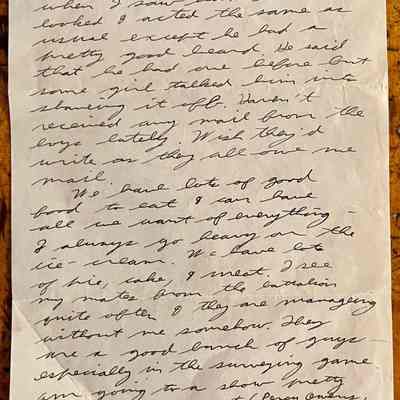 when I saw
looked & acted the same as
usual except he had a
pretty good beard. He said
that he had one before but
some girl talked him into
shaveing it off. Haven't
received any mail from the
boys lately. Wish they'd
write as they all owe me
mail.
We have lots of good
food to eat & can have
all we want of everything -
I always go heavy on the
ice-cream. We have lots
of pie, cake, & meat. I see
my mates from the battalion
quite often & they are manageing
without me somehow. They
are a good bunch of guys -
especially in the surveying game.
am going to a show pretty
(Percy Owens,